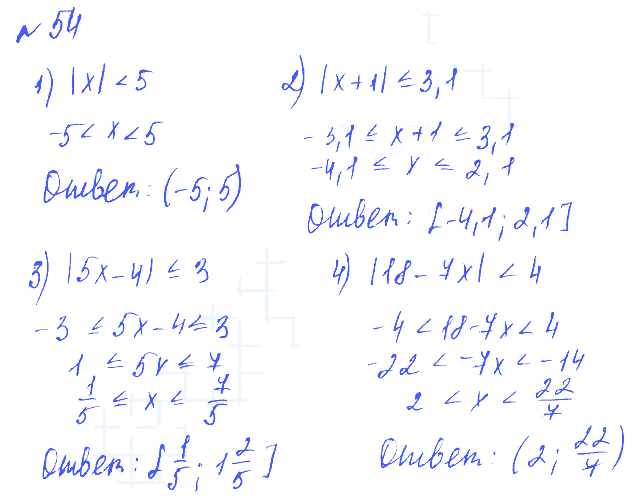 № 54
1) |x| < 5
-5 < x < 5
Ответ: (-5; 5)
2) |x+1| ≤ 3,1
-3,1 ≤ x+1 ≤ 3,1
-4,1 ≤ x ≤ 2,1
Ответ: [-4,1; 2,1]
3) |5x-4| ≤ 3
-3 ≤ 5x-4 ≤ 3
1 ≤ 5x ≤ 7
1/5 ≤ x ≤ 7/5
Ответ: [1/5; 1 2/5]
4) |18-7x| < 4
-4 < 18-7x < 4
-22 < -7x < -14
2 < x < 22/7
Ответ: (2; 22/7)